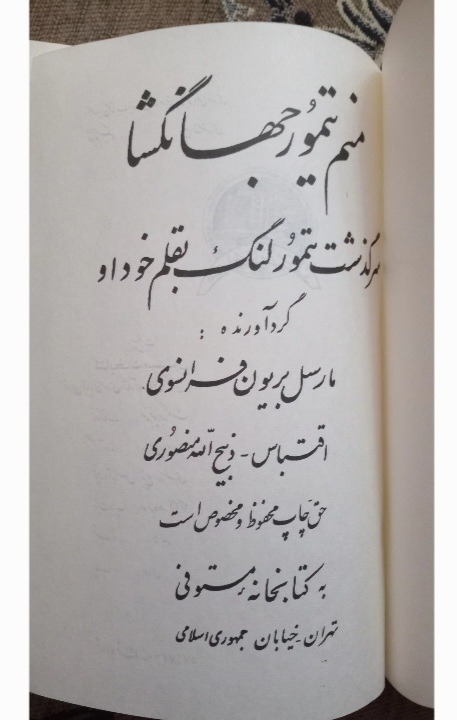 منم تیمور جهانگشا
سرگذشت تیمور لنگ بقلم خود او
گردآورنده :
مارسل بریون فرانسوی
اقتباس - ذبیح الله منصوری
حق چاپ محفوظ و مخصوص است
به کتابخانهٔ مستوفی
تهران - خیابان جمهوری اسلامی